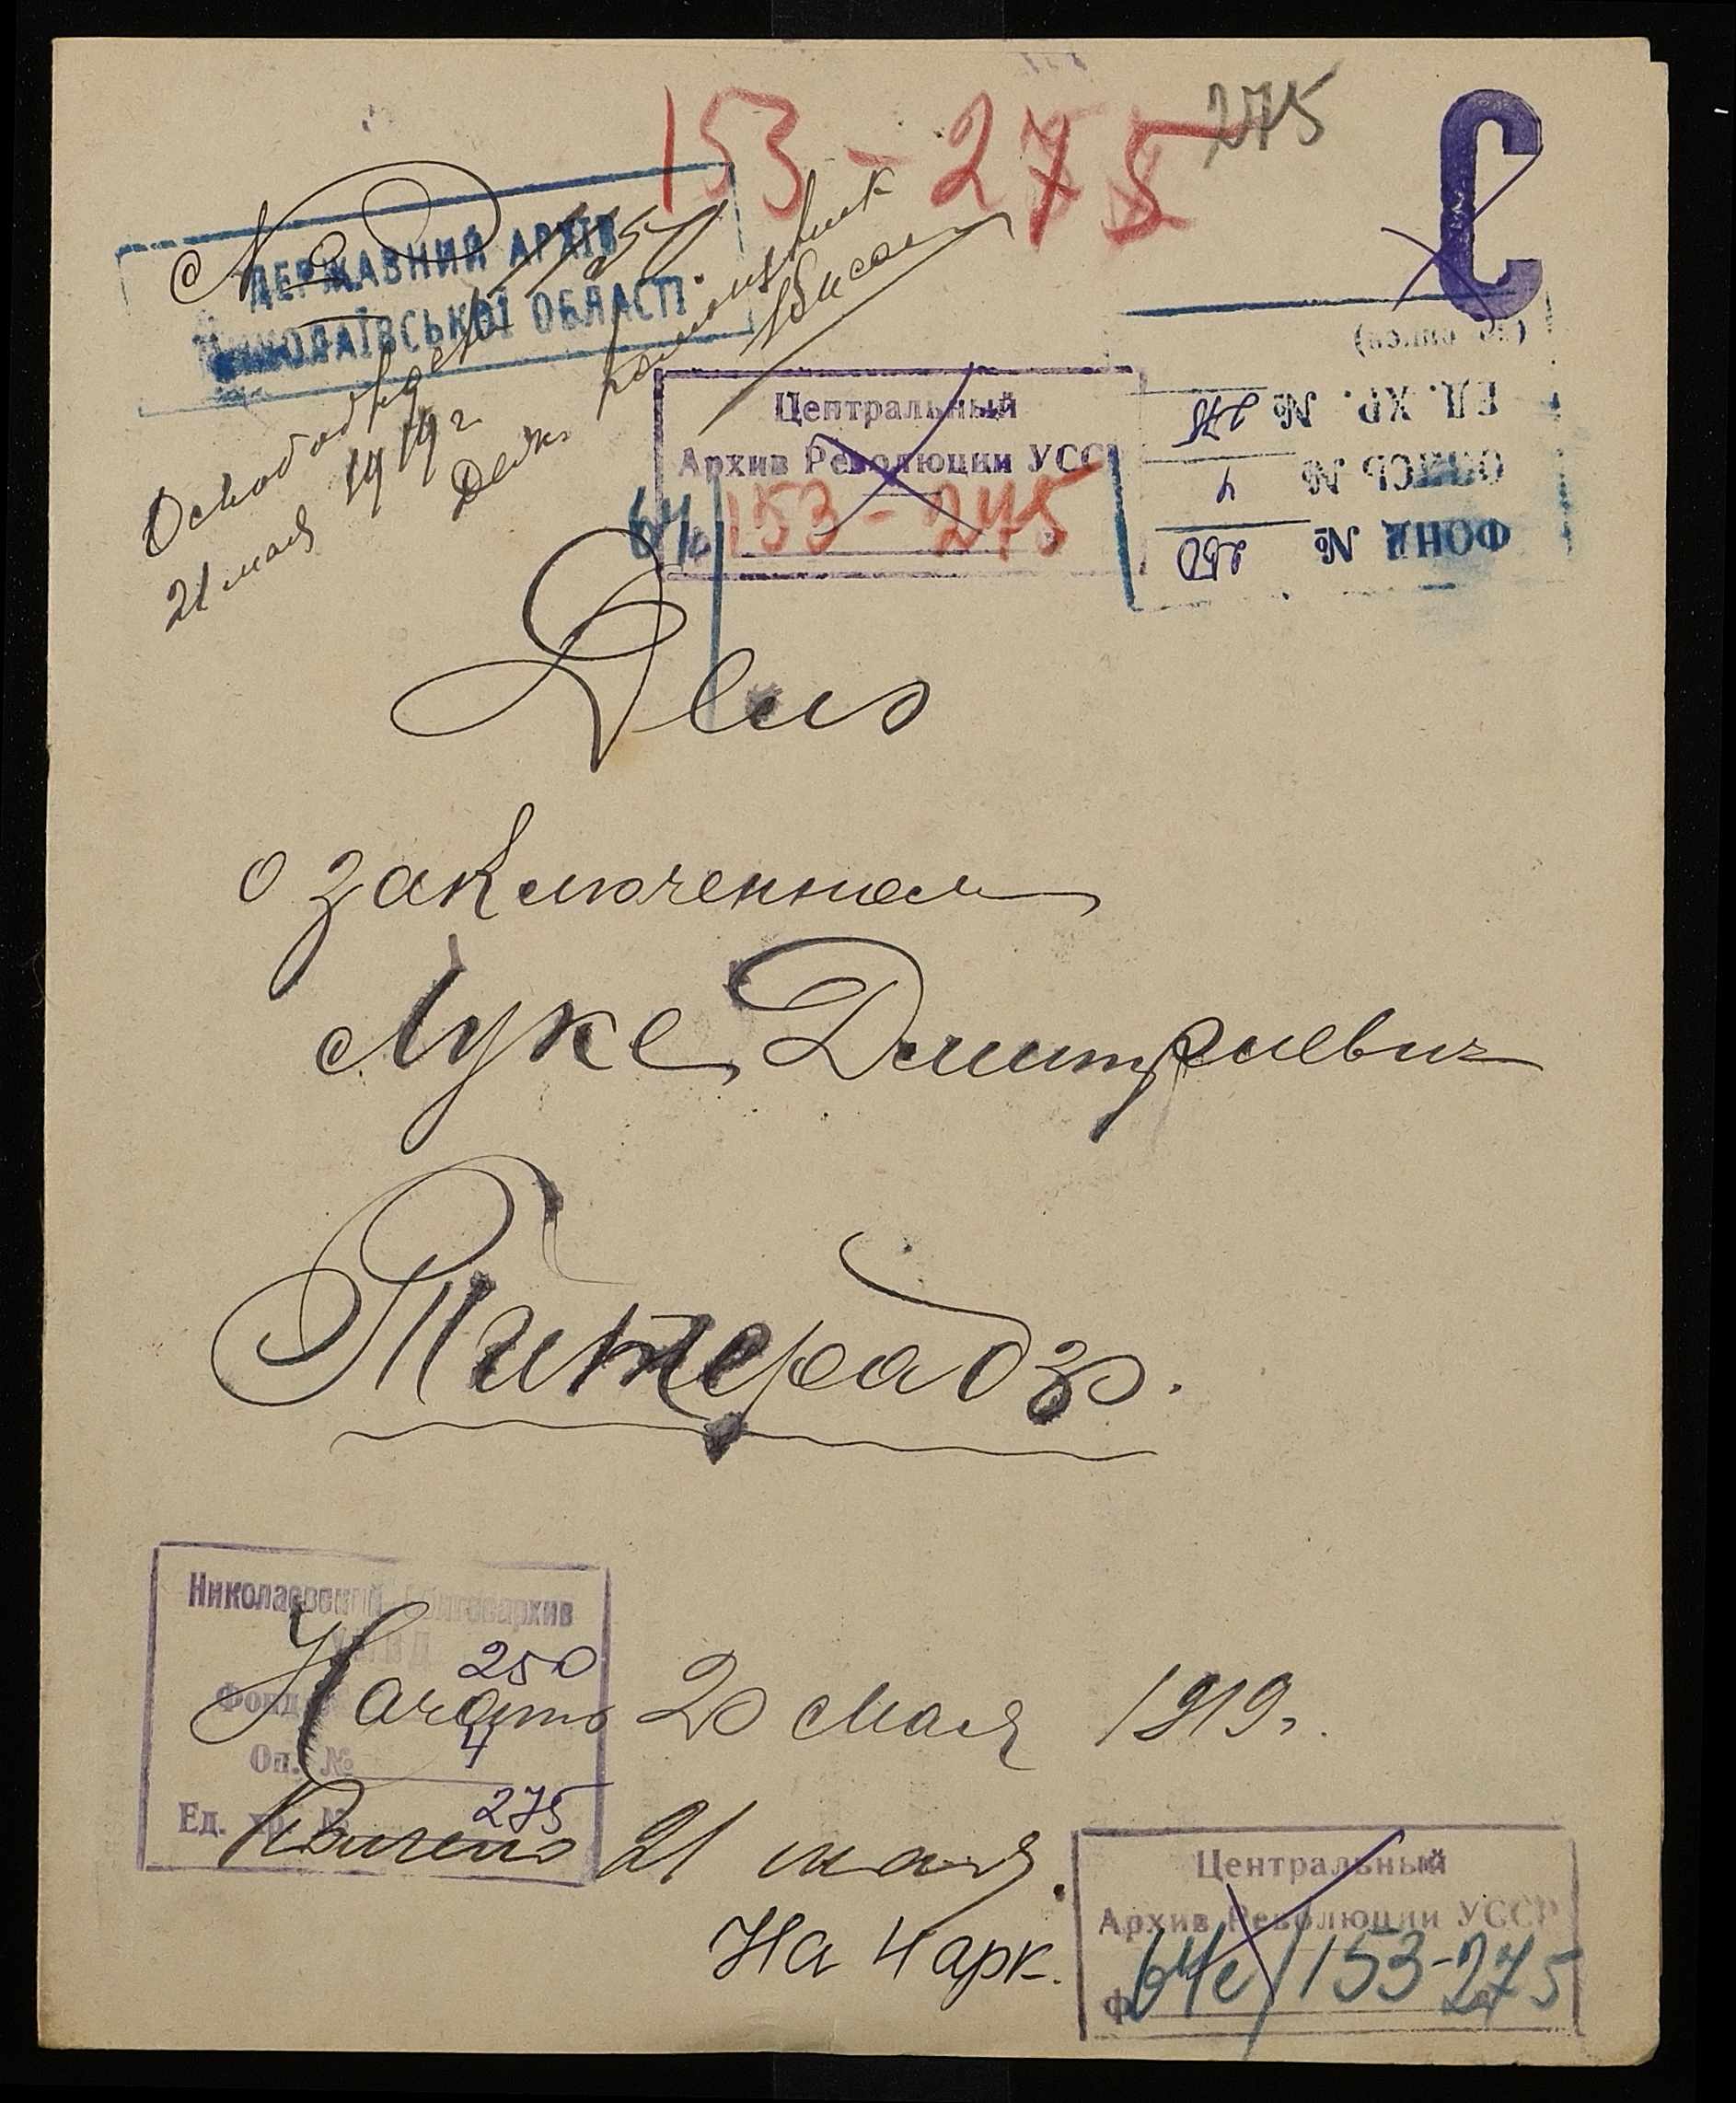 153-275
275
С
№
ДЕРЖАВНИЙ АРХІВ
МИКОЛАЇВСЬКОЇ ОБЛАСТІ
21 мая 1919 г
Центральный
Архив Революции УСС
64с/153-275
ФОНД № 250
ОПИСЬ № 4
ЕД. ХР. № 275
Дело
о заключенном
Луке Дмитриевич
Начато 20 мая 1919 г.
21 мая.
На 4 арк.
Николаевский Облгосархив
УМВД
Фонд 250
Оп. № 4
Ед. хр. № 275
Центральный
Архив Революции УССР
Ф 64с/153-275